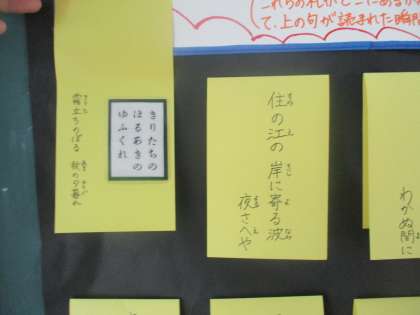 これらの札がどこにあるか
て、上の句が読まれた瞬間
きりたちの
ほるあきの
ゆふくれ
霧立ちのぼる 秋の夕暮れ
住の江の 岸に寄る波
夜さへや
わかぬ間に